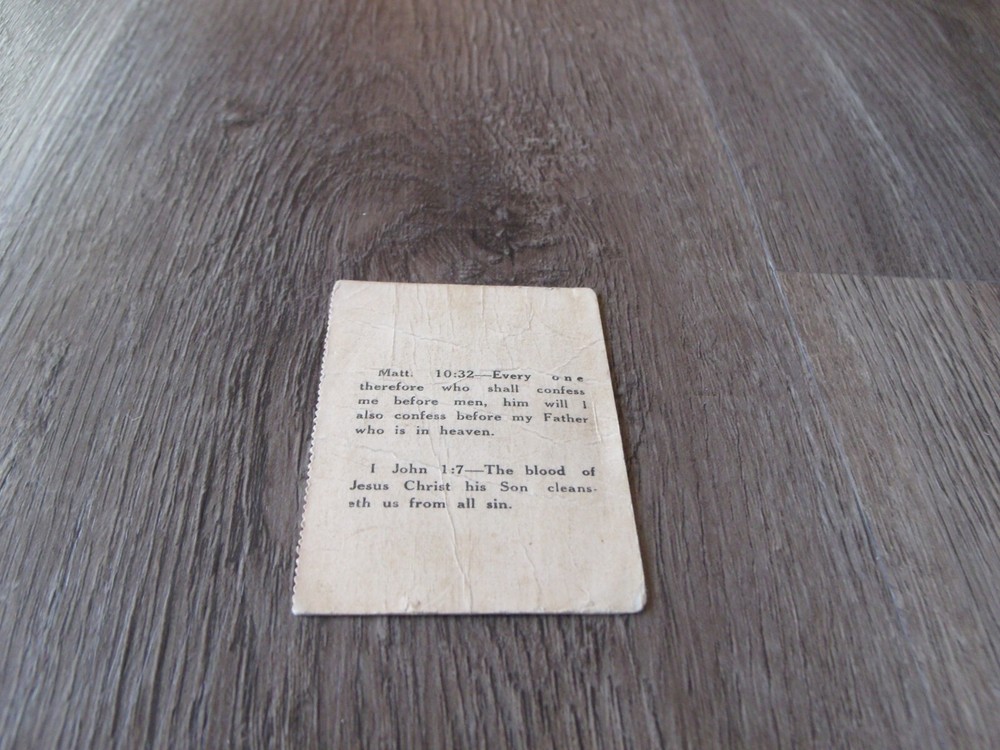 Matt. 10:32—Every one
therefore who shall confess
me before men, him will I
also confess before my Father
who is in heaven.
I John 1:7—The blood of
Jesus Christ his Son cleans-
eth us from all sin.